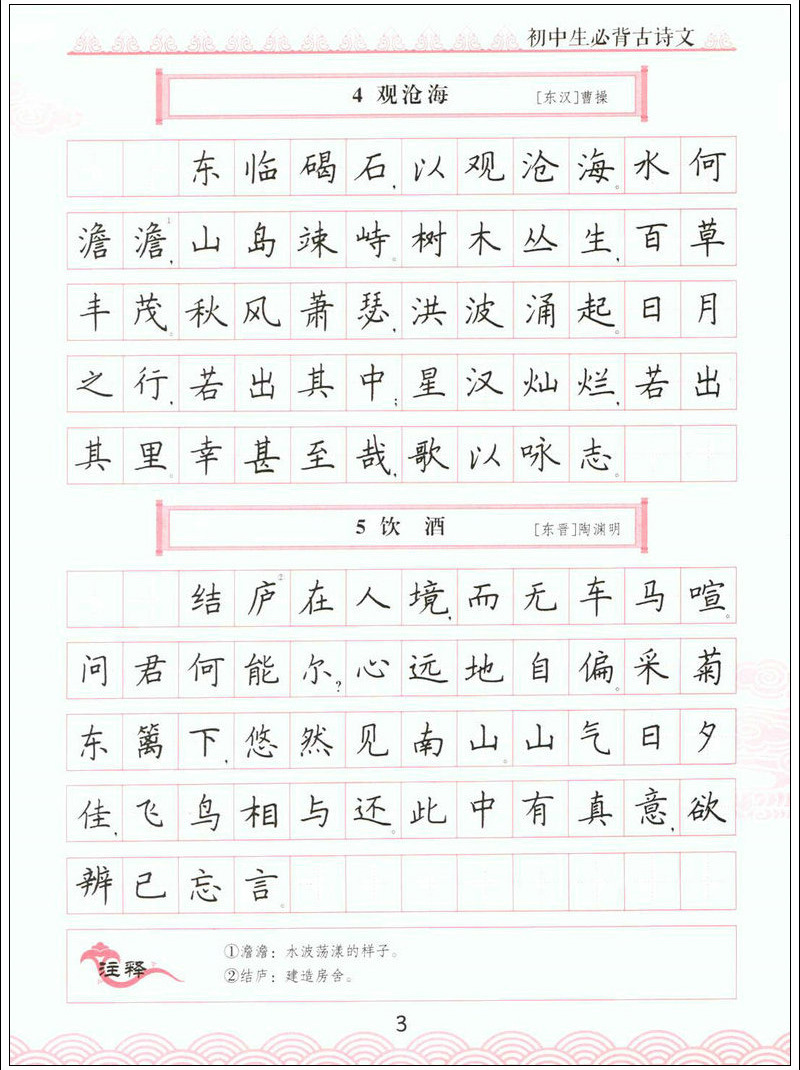 初中生必背古诗文
4 观沧海 [东汉]曹操
东临碣石,以观沧海。水何
澹澹①,山岛竦峙。树木丛生,百草
丰茂。秋风萧瑟,洪波涌起。日月
之行,若出其中;星汉灿烂,若出
其里。幸甚至哉,歌以咏志。
5 饮 酒 [东晋]陶渊明
结庐②在人境,而无车马喧。
问君何能尔?心远地自偏。采菊
东篱下,悠然见南山。山气日夕
佳,飞鸟相与还。此中有真意,欲
辨已忘言。
注释
①澹澹:水波荡漾的样子。
②结庐:建造房舍。
3